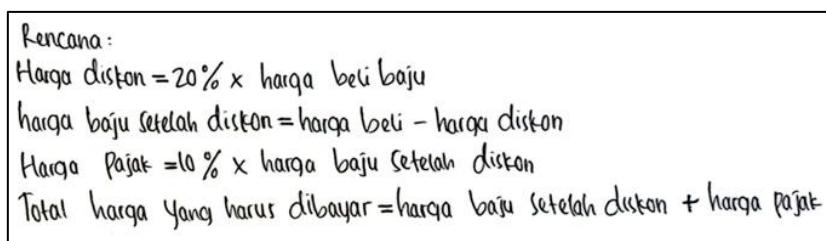 Rencana :
Harga diskon = 20% x harga beli baju
harga baju setelah diskon = harga beli - harga diskon
Harga Pajak = 10 % x harga baju setelah diskon
Total harga yang harus dibayar = harga baju setelah diskon + harga pajak